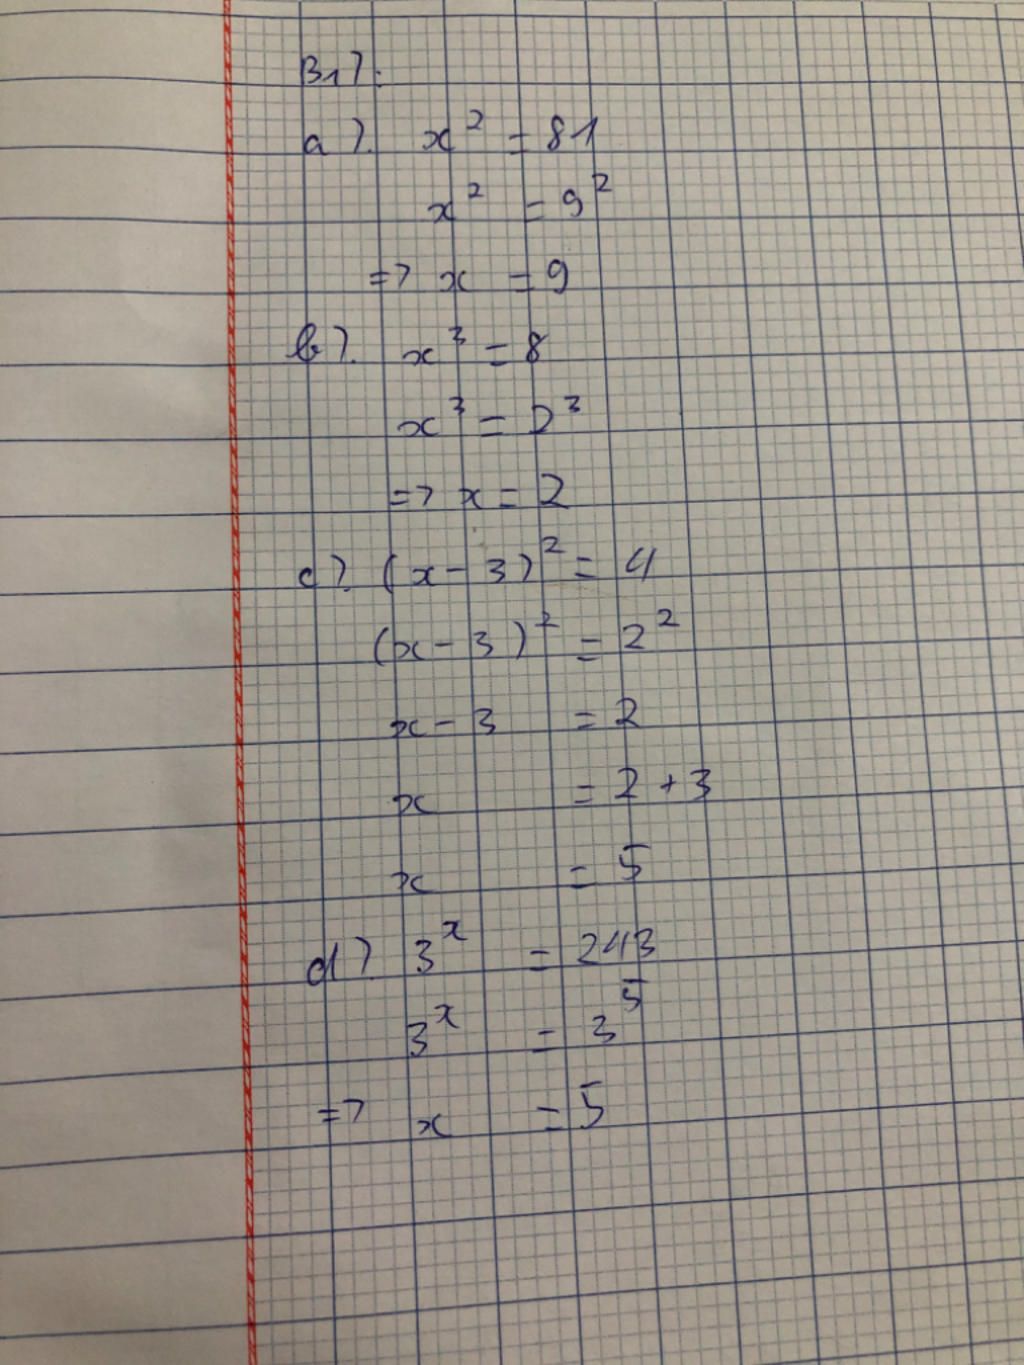 B1).
a). x² = 81
x² = 9²
=> x = 9
b). x³ = 8
x³ = 2³
=> x = 2
c). (x - 3)² = 4
(x - 3)² = 2²
x - 3 = 2
x = 2 + 3
x = 5
d). 3ˣ = 243
3ˣ = 3⁵
=> x = 5